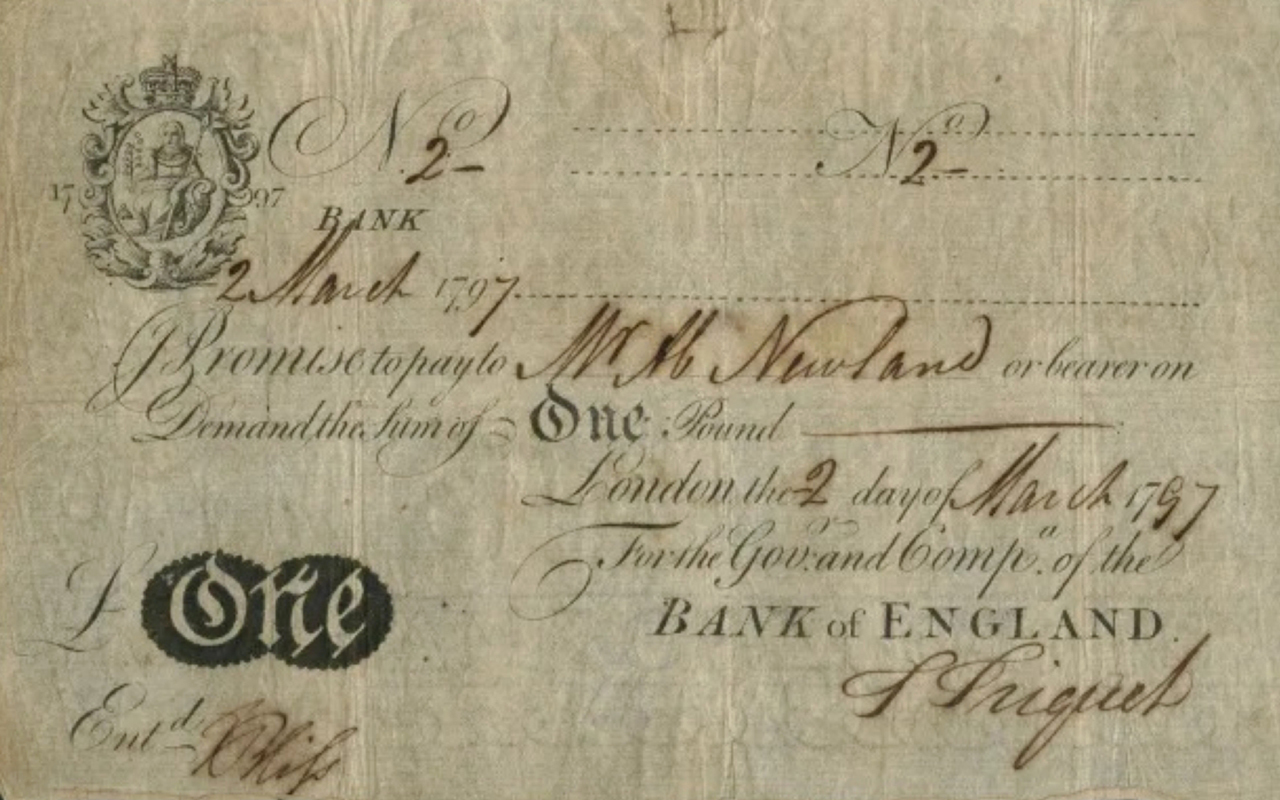 No 2- No 2-
17 97
BANK
2 March 1797
I Promise to pay to Mr Ab Newland or bearer on
Demand the Sum of One Pound
London the 2 day of March 1797
For the Govr. and Compa. of the
£ One
BANK of ENGLAND.
Entd.